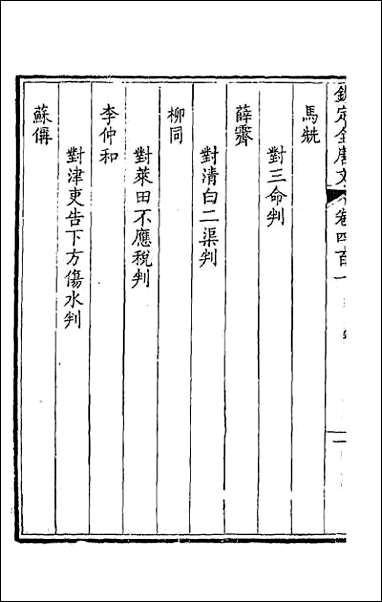 欽定全唐文 卷四百一
馬兟
對三命判
薛霽
對清白二渠判
柳同
對萊田不應稅判
李仲和
對津吏告下方傷水判
蘇倎